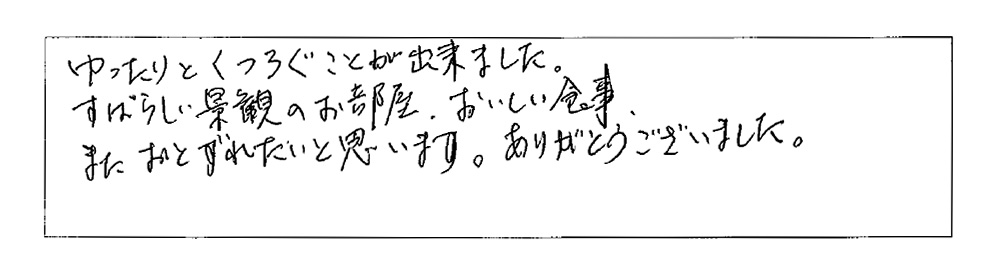 ゆったりとくつろぐことが出来ました。
すばらしい景観のお部屋、おいしい食事、
またおとずれたいと思います。ありがとうございました。